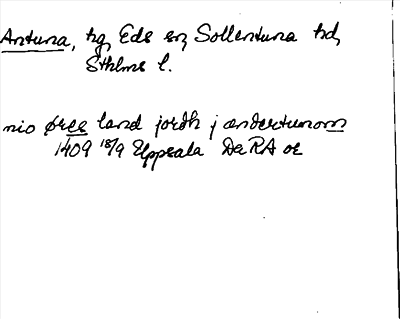 Antuna, hg, Eds sn, Sollentuna hd,
Sthlms l.
nio øres land jordh j andertunom
1409 18/9 Uppsala DaRA or